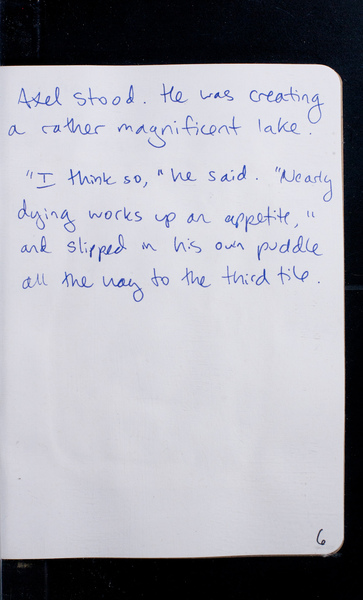 Axel stood. He was creating
a rather magnificent lake.
"I think so," he said. "Nearly
dying works up an appetite,"
and slipped in his own puddle
all the way to the third tile.
6